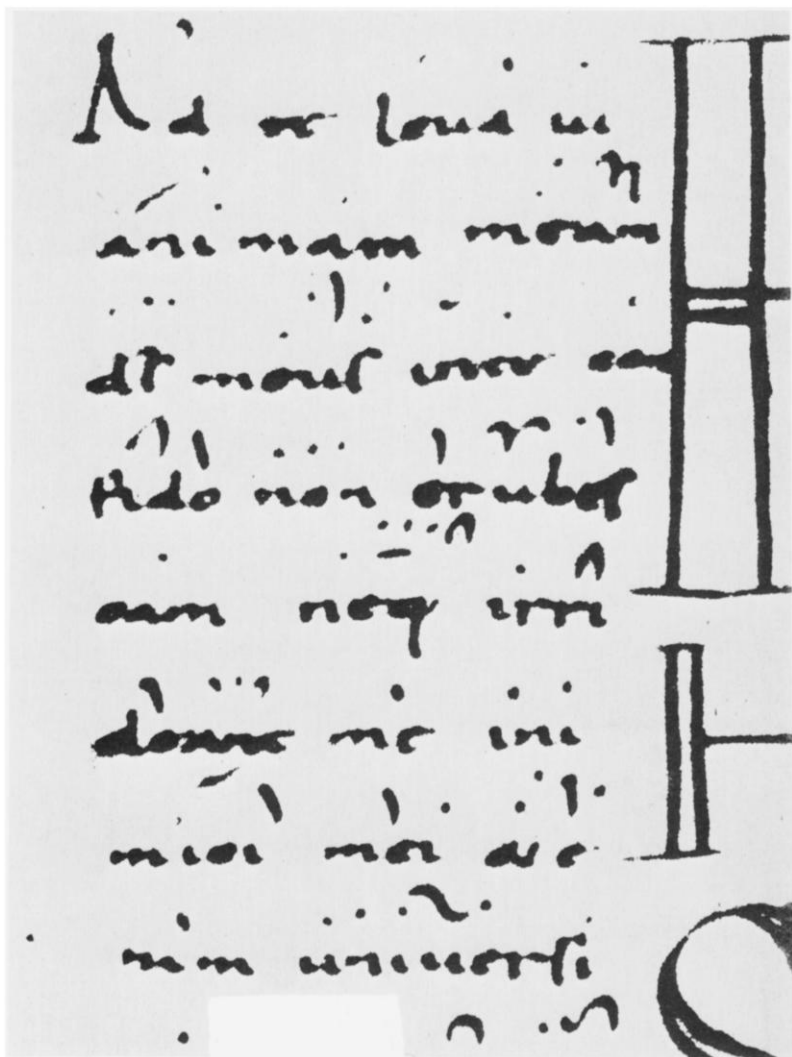 Ad te leuaui
animam meam
ds meus in te con
fido non erubes
cam neq irri
deant me ini
mici mei et e
nim uniuersi